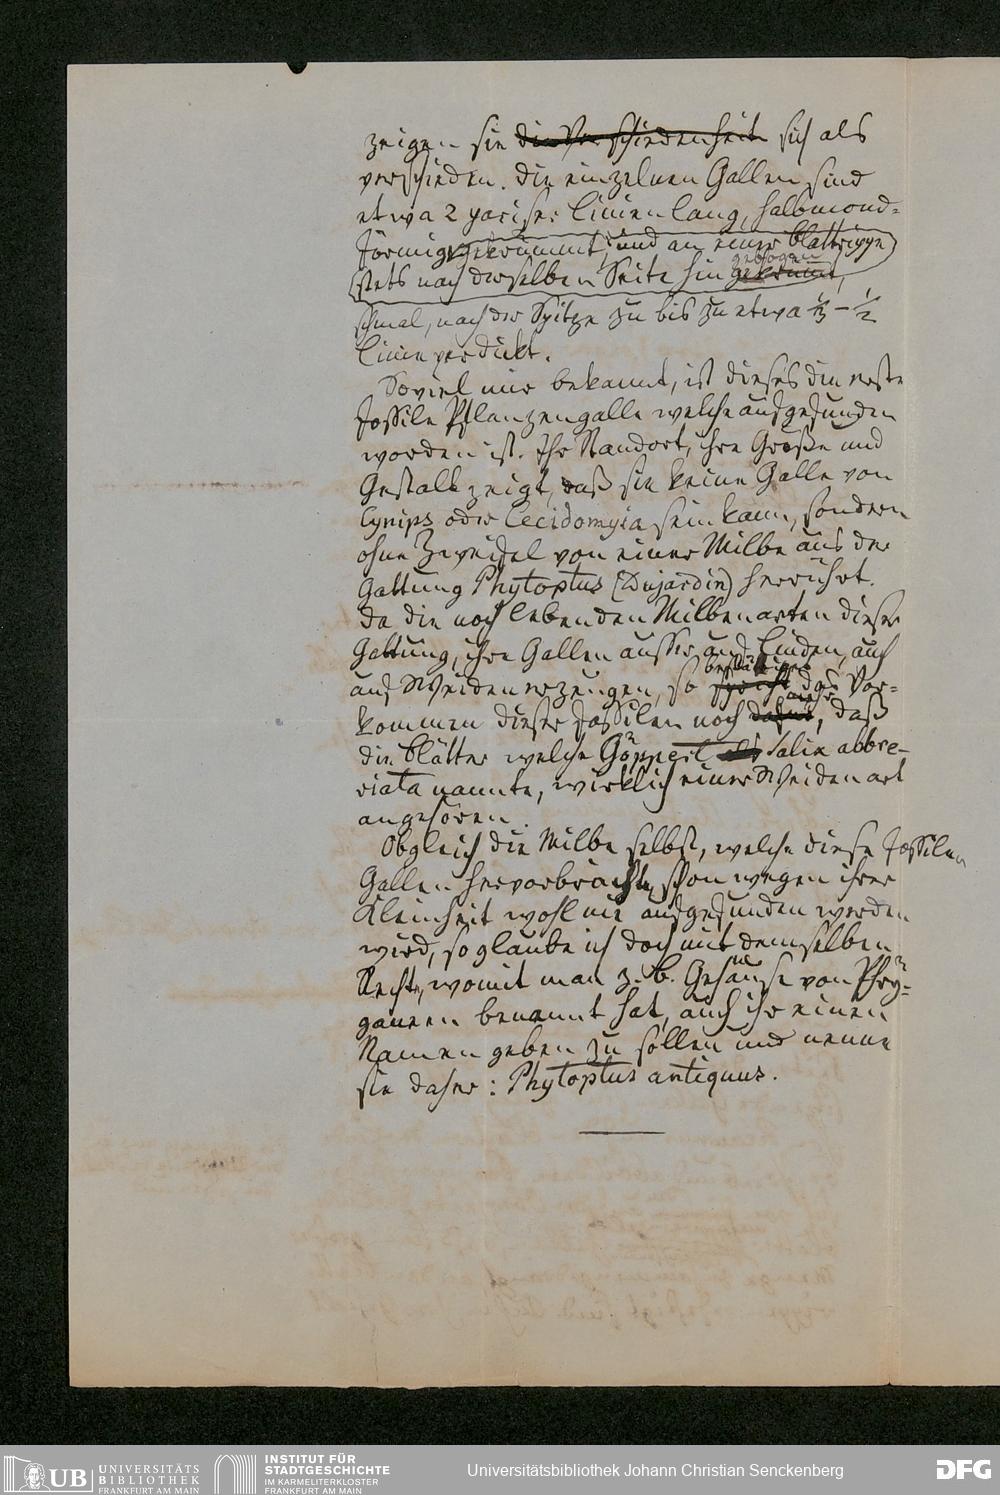 zeigen sie die Verschiedenheit sich als
verschieden. Die einzelnen Gallen sind
etwa 2 pariser Linien lang, halbmond-
förmig gekrümmt, und an einer Blattrippe
gebogen
stets nach derselben Seite hin gekrümmt,
schmal, nach der Spitze zu bis zu etwa 1/3 – 1/2
Linie verdickt.
Soviel mir bekannt, ist dieses die erste
fossile Pflanzengalle welche aufgefunden
worden ist. Ihr Standort, ihre Große und
Gestalt zeigt, daß sie keine Galle von
Cynips oder Cecidomyia sein kann, sondern
ohne Zweifel von einer Milbe aus der
Gattung Phytoptus (Dujardin) herrührt.
Da die noch lebenden Milbenarten dieser
Gattung, ihre Gallen ausser auf Linden, auch
auf Weiden erzeugen, so spricht das Vor-
kommen dieser Fossilen noch dafür, daß
die Blätter welche Göppert als Salix abbre-
viata nannte, wirklich einer Weidenart
angehören.
Obgleich die Milbe selbst, welche diese fossilen
Gallen hervorbrachte, schon wegen ihrer
Kleinheit wohl nie aufgefunden werden
wird, so glaube ich doch mit demselben
Recht, womit man z. B. Gehäuse von Phry-
ganeen benannt hat, auch ihr einen
Namen geben zu sollen und nenne
sie daher: Phytoptus antiquus.
UB UNIVERSITÄTS
BIBLIOTHEK
FRANKFURT AM MAIN
INSTITUT FÜR
STADTGESCHICHTE
IM KARMELITERKLOSTER
FRANKFURT AM MAIN
Universitätsbibliothek Johann Christian Senckenberg
DFG